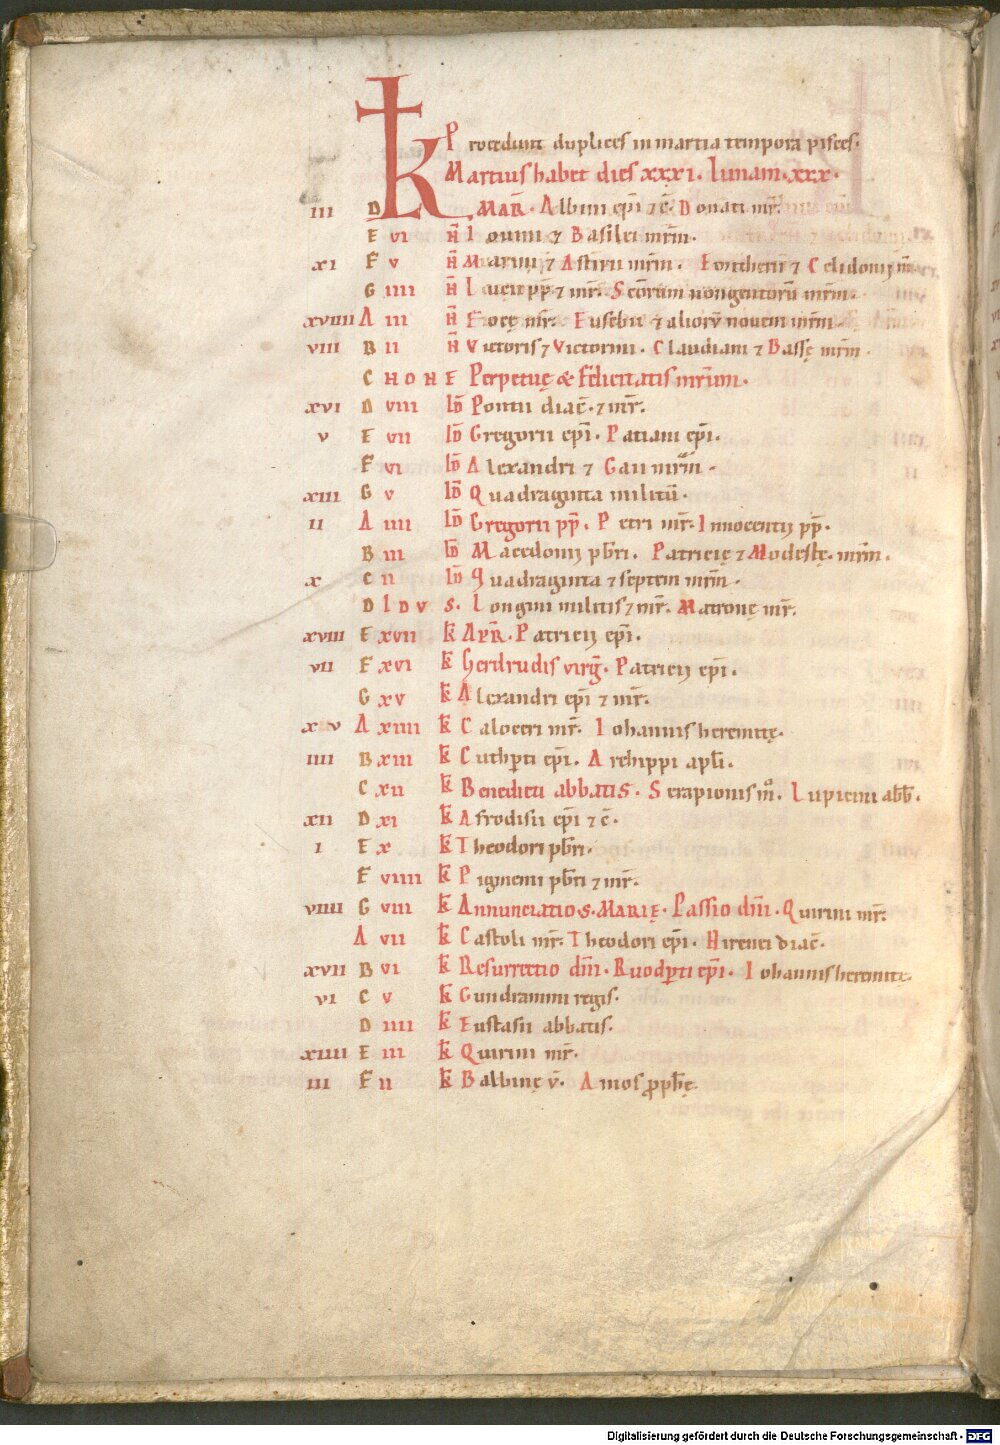 Procedunt duplices in martia tempora pisces.
Martius habet dies xxxi. lunam. xxx.
III D K MAR̄. Albini ep̄i ⁊ c̄. Donati mr̄.
E VI N̄ Iouini ⁊ Basilei mr̄m.
XI F V N̄ Marini ⁊ Astirii mr̄m. Emitherii ⁊ Celidonij m̄
G IIII N̄ Lucii pp̄ ⁊ mr̄. Sc̄orum nongentorū mr̄m.
XVIIII A III N̄ Focę mr̄. Eusebii ⁊ aliorū nouem mr̄m.
VIII B II N̄ Victoris ⁊ Victorini. Claudiani ⁊ Bassę mr̄m.
C N O N E Perpetuę & Felicitatis mr̄um.
XVI D VIII ID̄ Pontii diac̄. ⁊ mr̄.
V E VII ID̄ Gregorii ep̄i. Patiani ep̄i.
F VI ID̄ Alexandri ⁊ Gaii mr̄m.
XIII G V ID̄ Quadraginta militū.
II A IIII ID̄ Gregorii pp̄. Petri mr̄. Innocentij pp̄.
B III ID̄ Macedonij pb̄ri. Patricię ⁊ Modestę. mr̄m.
X C II ID̄ Quadraginta ⁊ septem mr̄m.
D I D V S. Longini militis ⁊ mr̄. Matronę mr̄.
XVIII E XVII K̄ APR̄. Patricij ep̄i.
VII F XVI K̄ Gerdrudis virḡ. Patricij ep̄i.
G XV K̄ Alexandri ep̄i ⁊ mr̄.
XV A XIIII K̄ Caloceri mr̄. Iohannis heremitę.
IIII B XIII K̄ Cuthp̄ti ep̄i. Archippi apl̄i.
C XII K̄ Benedicti abbatis. Serapionis m̄. Lupicini abb̄.
XII D XI K̄ Afrodisii ep̄i ⁊ c̄.
I E X K̄ Theodori pb̄ri.
F VIIII K̄ Pigmenii pb̄ri ⁊ mr̄.
VIIII G VIII K̄ Annunciatio S. MARIĘ. Passio dn̄i. Quirini mr̄.
A VII K̄ Castoli mr̄. Theodori ep̄i. Hirenei diac̄.
XVII B VI K̄ Resurrectio dn̄i. Ruodp̄ti ep̄i. Iohannis heremitę.
VI C V K̄ Gundrammi regis.
D IIII K̄ Eustasii abbatis.
XIIII E III K̄ Quirini mr̄.
III F II K̄ Balbinę v̄. Amos ꝓph̄ę.
Digitalisierung gefördert durch die Deutsche Forschungsgemeinschaft - DFG